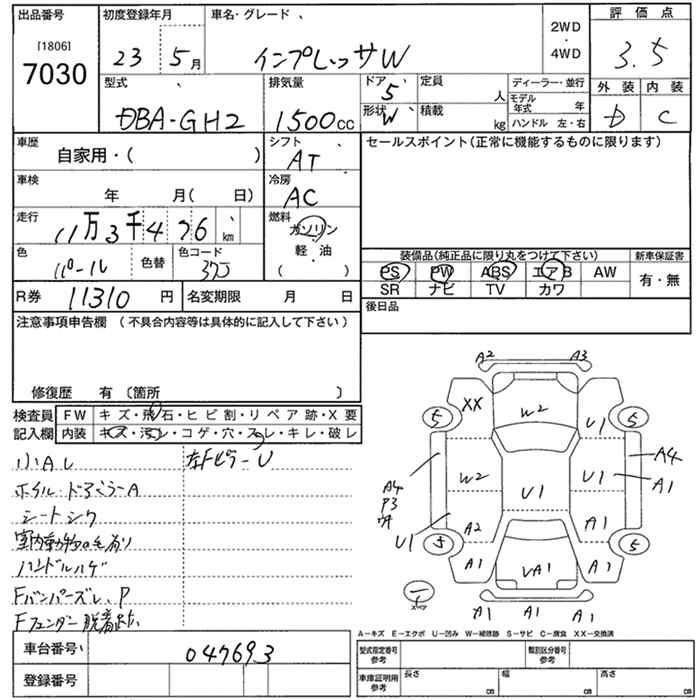 出品番号 初度登録年月 車名・グレード、 評価点
[1806]
7030
23 5月 インプレッサW
2WD
・
4WD
3.5
外装 内装
D C
型式 、 排気量 ドア、 定員 ディーラー・並行
DBA-GH2 1500cc 5 人 モデル年式 年
形状 W 積載 kg ハンドル 左・右
車歴 シフト、 セールスポイント(正常に機能するものに限ります)
自家用・( ) AT
車検 冷房
年 月( 日) AC
走行 燃料
11万3千476 km ガソリン
軽・油
( )
色 色替 色コード
パール 37J
装備品(純正品に限り丸をつけて下さい) 新車保証書
PS PW ABS エアB AW 有・無
SR ナビ TV カワ
R券 11310円 名変期限 月 日 後日品
注意事項申告欄 (不具合内容等は具体的に記入して下さい)
修復歴 有〔箇所 〕
検査員 FW キズ・飛石・ヒビ割・リペア跡・X要
記入欄 内装 キズ・汚れ・コゲ・穴・スレ・キレ・破レ
小AU 左Fピラ-U
シートシワ
室内動物の毛有り
ハンドルハゲ
Fバンパーズレ、P
Fフェンダー脱着跡
車台番号 047693
登録番号
A2 A3
XX W2 U1
5 5
W2 U1 U1 A4 A1
A4
P3
U1 A2 A1
5 5
A1 UA1 A1
スペア
A1 A1 A1
A-キズ E-エクボ U-凹み W-補修跡 S-サビ C-腐食 XX-交換済
型式指定番号 参考 類別区分番号 参考
車庫証明用 参考 長さ cm 幅 cm 高さ cm